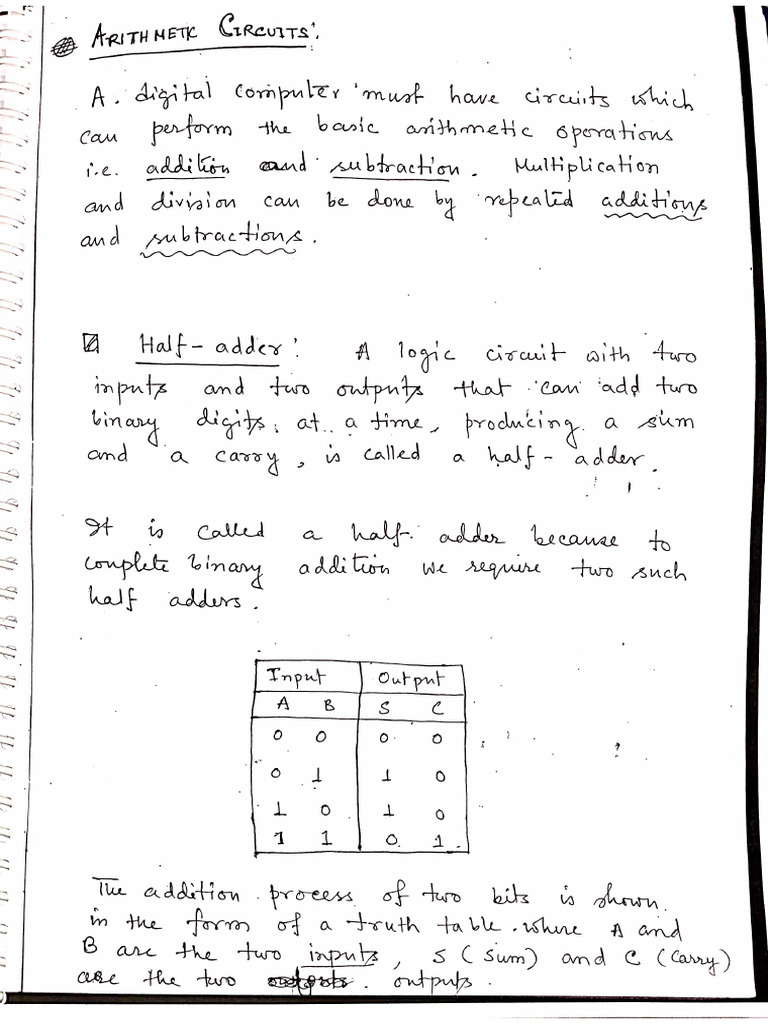 ARITHMETIC CIRCUITS:
A digital computer must have circuits which
can perform the basic arithmetic operations
i.e. addition and subtraction. Multiplication
and division can be done by repeated additions
and subtractions.
Half-adder: A logic circuit with two
inputs and two outputs that can add two
binary digits, at a time, producing a sum
and a carry, is called a half-adder.
It is called a half adder because to
complete binary addition we require two such
half adders.
Input Output
A B S C
0 0 0 0
0 1 1 0
1 0 1 0
1 1 0 1
The addition process of two bits is shown
in the form of a truth table. where A and
B are the two inputs, S (Sum) and C (Carry)
are the two outputs.